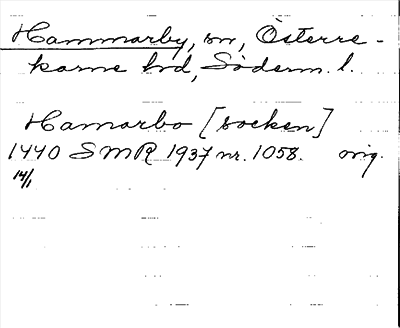 Hammarby, sn, Österre-
karne hd, Söderm. l.
Hamarbo [socken]
1440 SMR 1937 nr. 1058. orig.
14/1